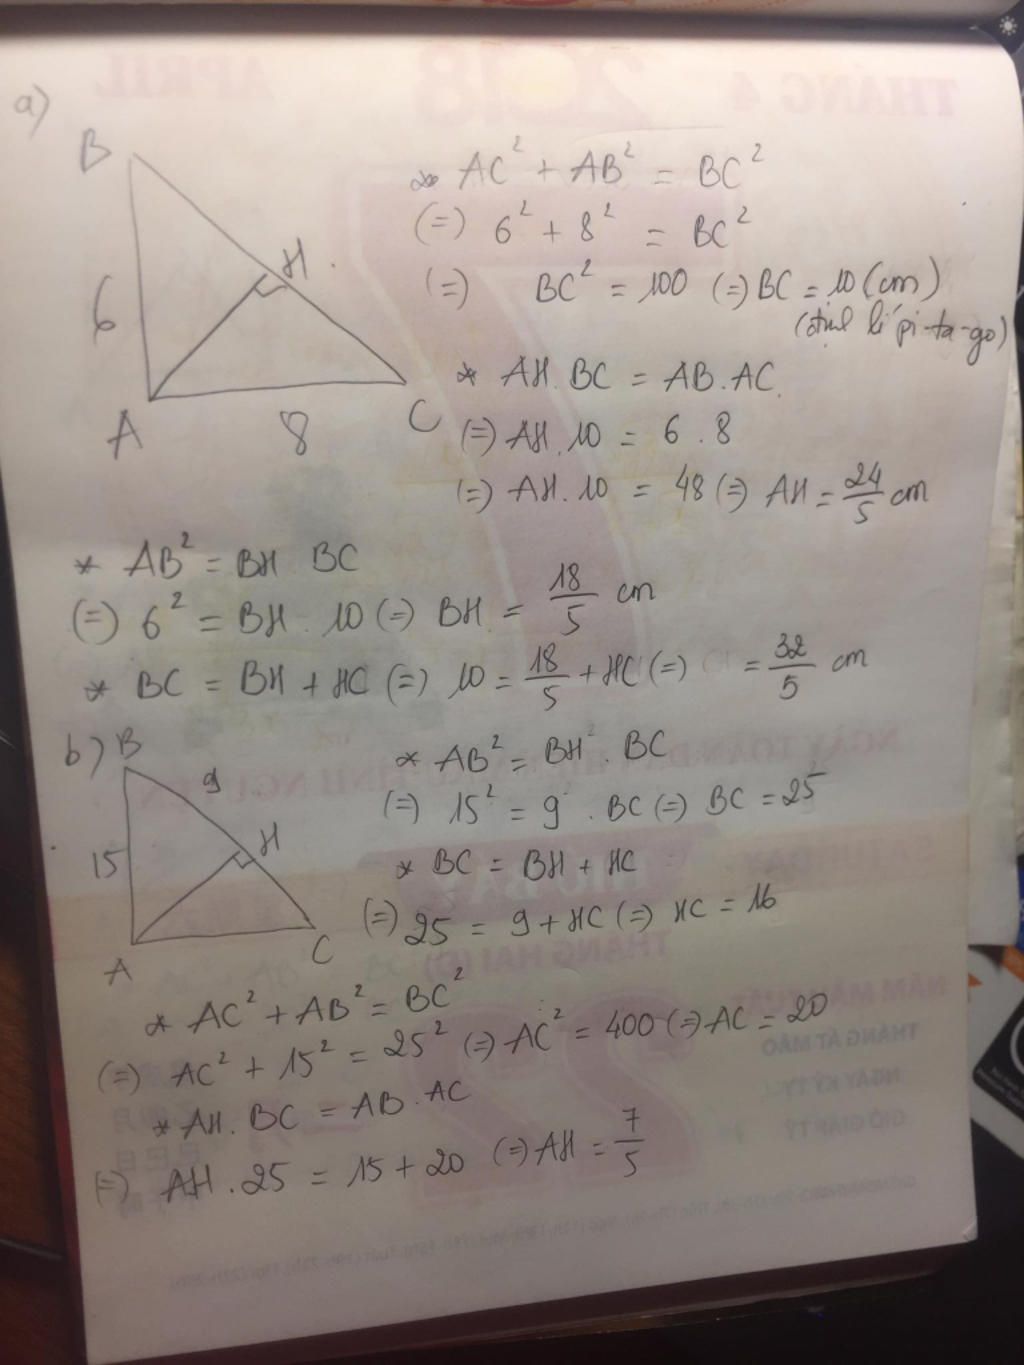 a)
B
H
6
A
8
C
* AC² + AB² = BC²
(=) 6² + 8² = BC²
(=) BC² = 100 (=) BC = 10 (cm)
(định lí pi-ta-go)
* AH . BC = AB . AC
(=) AH . 10 = 6 . 8
(=) AH . 10 = 48 (=) AH = 24/5 cm
* AB² = BH BC
(=) 6² = BH . 10 (=) BH = 18/5 cm
* BC = BH + HC (=) 10 = 18/5 + HC (=) = 32/5 cm
b)
B
9
H
15
A
C
* AB² = BH . BC
(=) 15² = 9 . BC (=) BC = 25
* BC = BH + HC
(=) 25 = 9 + HC (=) HC = 16
* AC² + AB² = BC²
(=) AC² + 15² = 25² (=) AC² = 400 (=) AC = 20
* AH . BC = AB . AC
(=) AH . 25 = 15 + 20 (=) AH = 7/5
THÁNG 4
2018
APRIL
7
THÁNG HAI (Đ)
22
NGÀY KỶ TỴ
GIỜ GIÁP TÝ